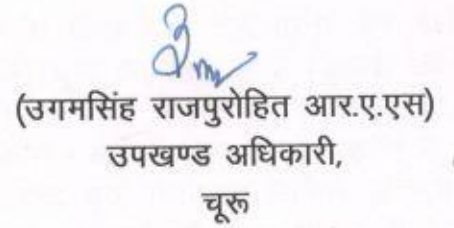 (उगमसिंह राजपुरोहित आर.ए.एस)
उपखण्ड अधिकारी,
चूरू